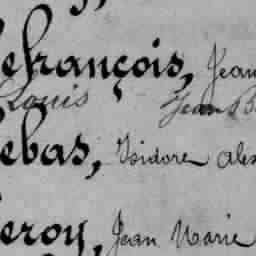 efrançois, Jean
Louis Jean B
ebas, Isidore Alex
eroy, Jean Marie